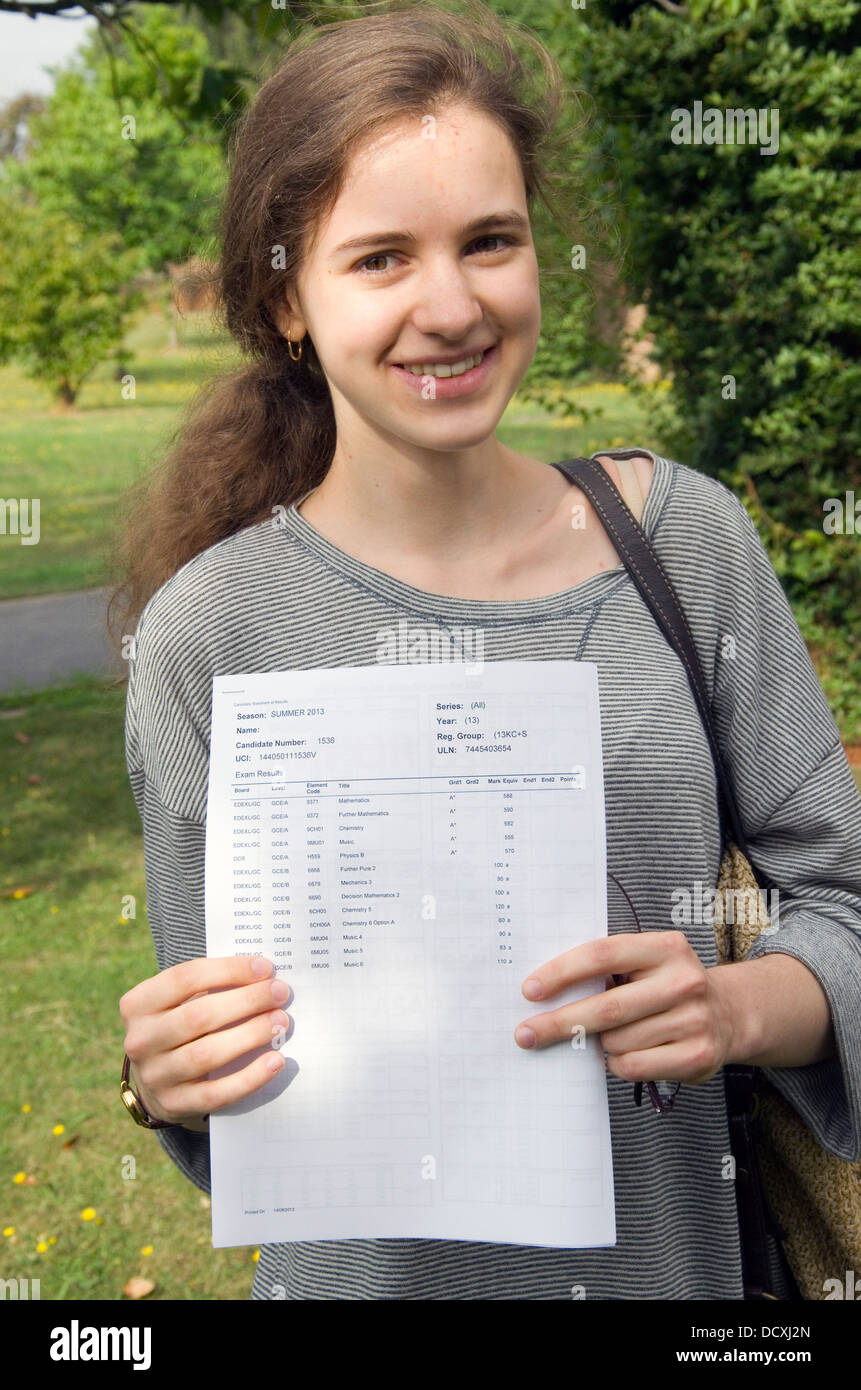 Candidate Statement of Results
Season: SUMMER 2013 Series: (All)
Name: Year: (13)
Candidate Number: 1536 Reg. Group: (13KC+S
UCI: 144050111536V ULN: 7445403654
Exam Results
Board Level Element Code Title Grd1 Grd2 Mark Equiv End1 End2 Points
EDEXL/GC GCE/A 9371 Mathematics A* 588
EDEXL/GC GCE/A 9372 Further Mathematics A* 590
EDEXL/GC GCE/A 9CH01 Chemistry A* 582
EDEXL/GC GCE/A 9MU01 Music A* 555
OCR GCE/A H559 Physics B A* 570
EDEXL/GC GCE/B 6668 Further Pure 2 100 a
EDEXL/GC GCE/B 6679 Mechanics 3 95 a
EDEXL/GC GCE/B 6690 Decision Mathematics 2 100 a
EDEXL/GC GCE/B 6CH05 Chemistry 5 120 a
EDEXL/GC GCE/B 6CH06A Chemistry 6 Option A 60 a
EDEXL/GC GCE/B 6MU04 Music 4 90 a
EDEXL/GC GCE/B 6MU05 Music 5 83 a
EDEXL/GC GCE/B 6MU06 Music 6 110 a
Printed On 14/08/2013
alamy
Image ID: DCXJ2N
www.alamy.com